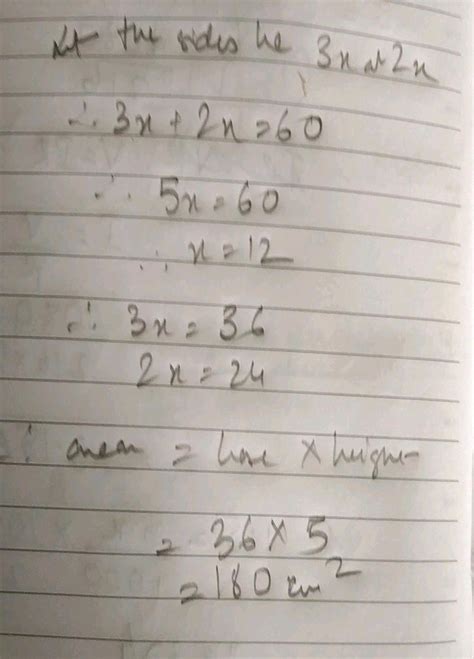 Let the sides be 3x & 2x
∴ 3x + 2x = 60
∴ 5x = 60
∴ x = 12
∴ 3x = 36
2x = 24
∴ area = base × height
= 36 × 5
= 180 cm²